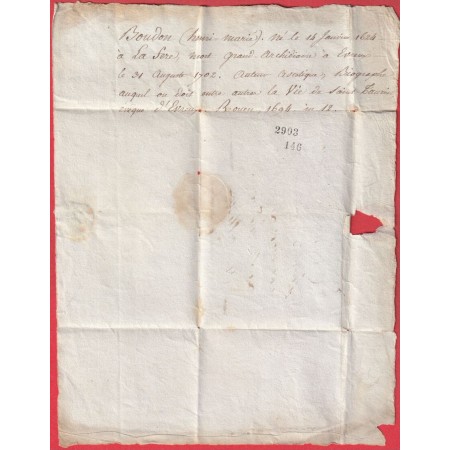 Boudon (henri-marie). né le 14 Janvier 1624
à La Fere, mort grand Archidiacre à Evreux
le 31 Auguste 1702. Auteur ascetique, Biographe
auquel on doit entre autres la Vie de Saint Taurin
Evreux Rouen 1694 in 12.
2993
146